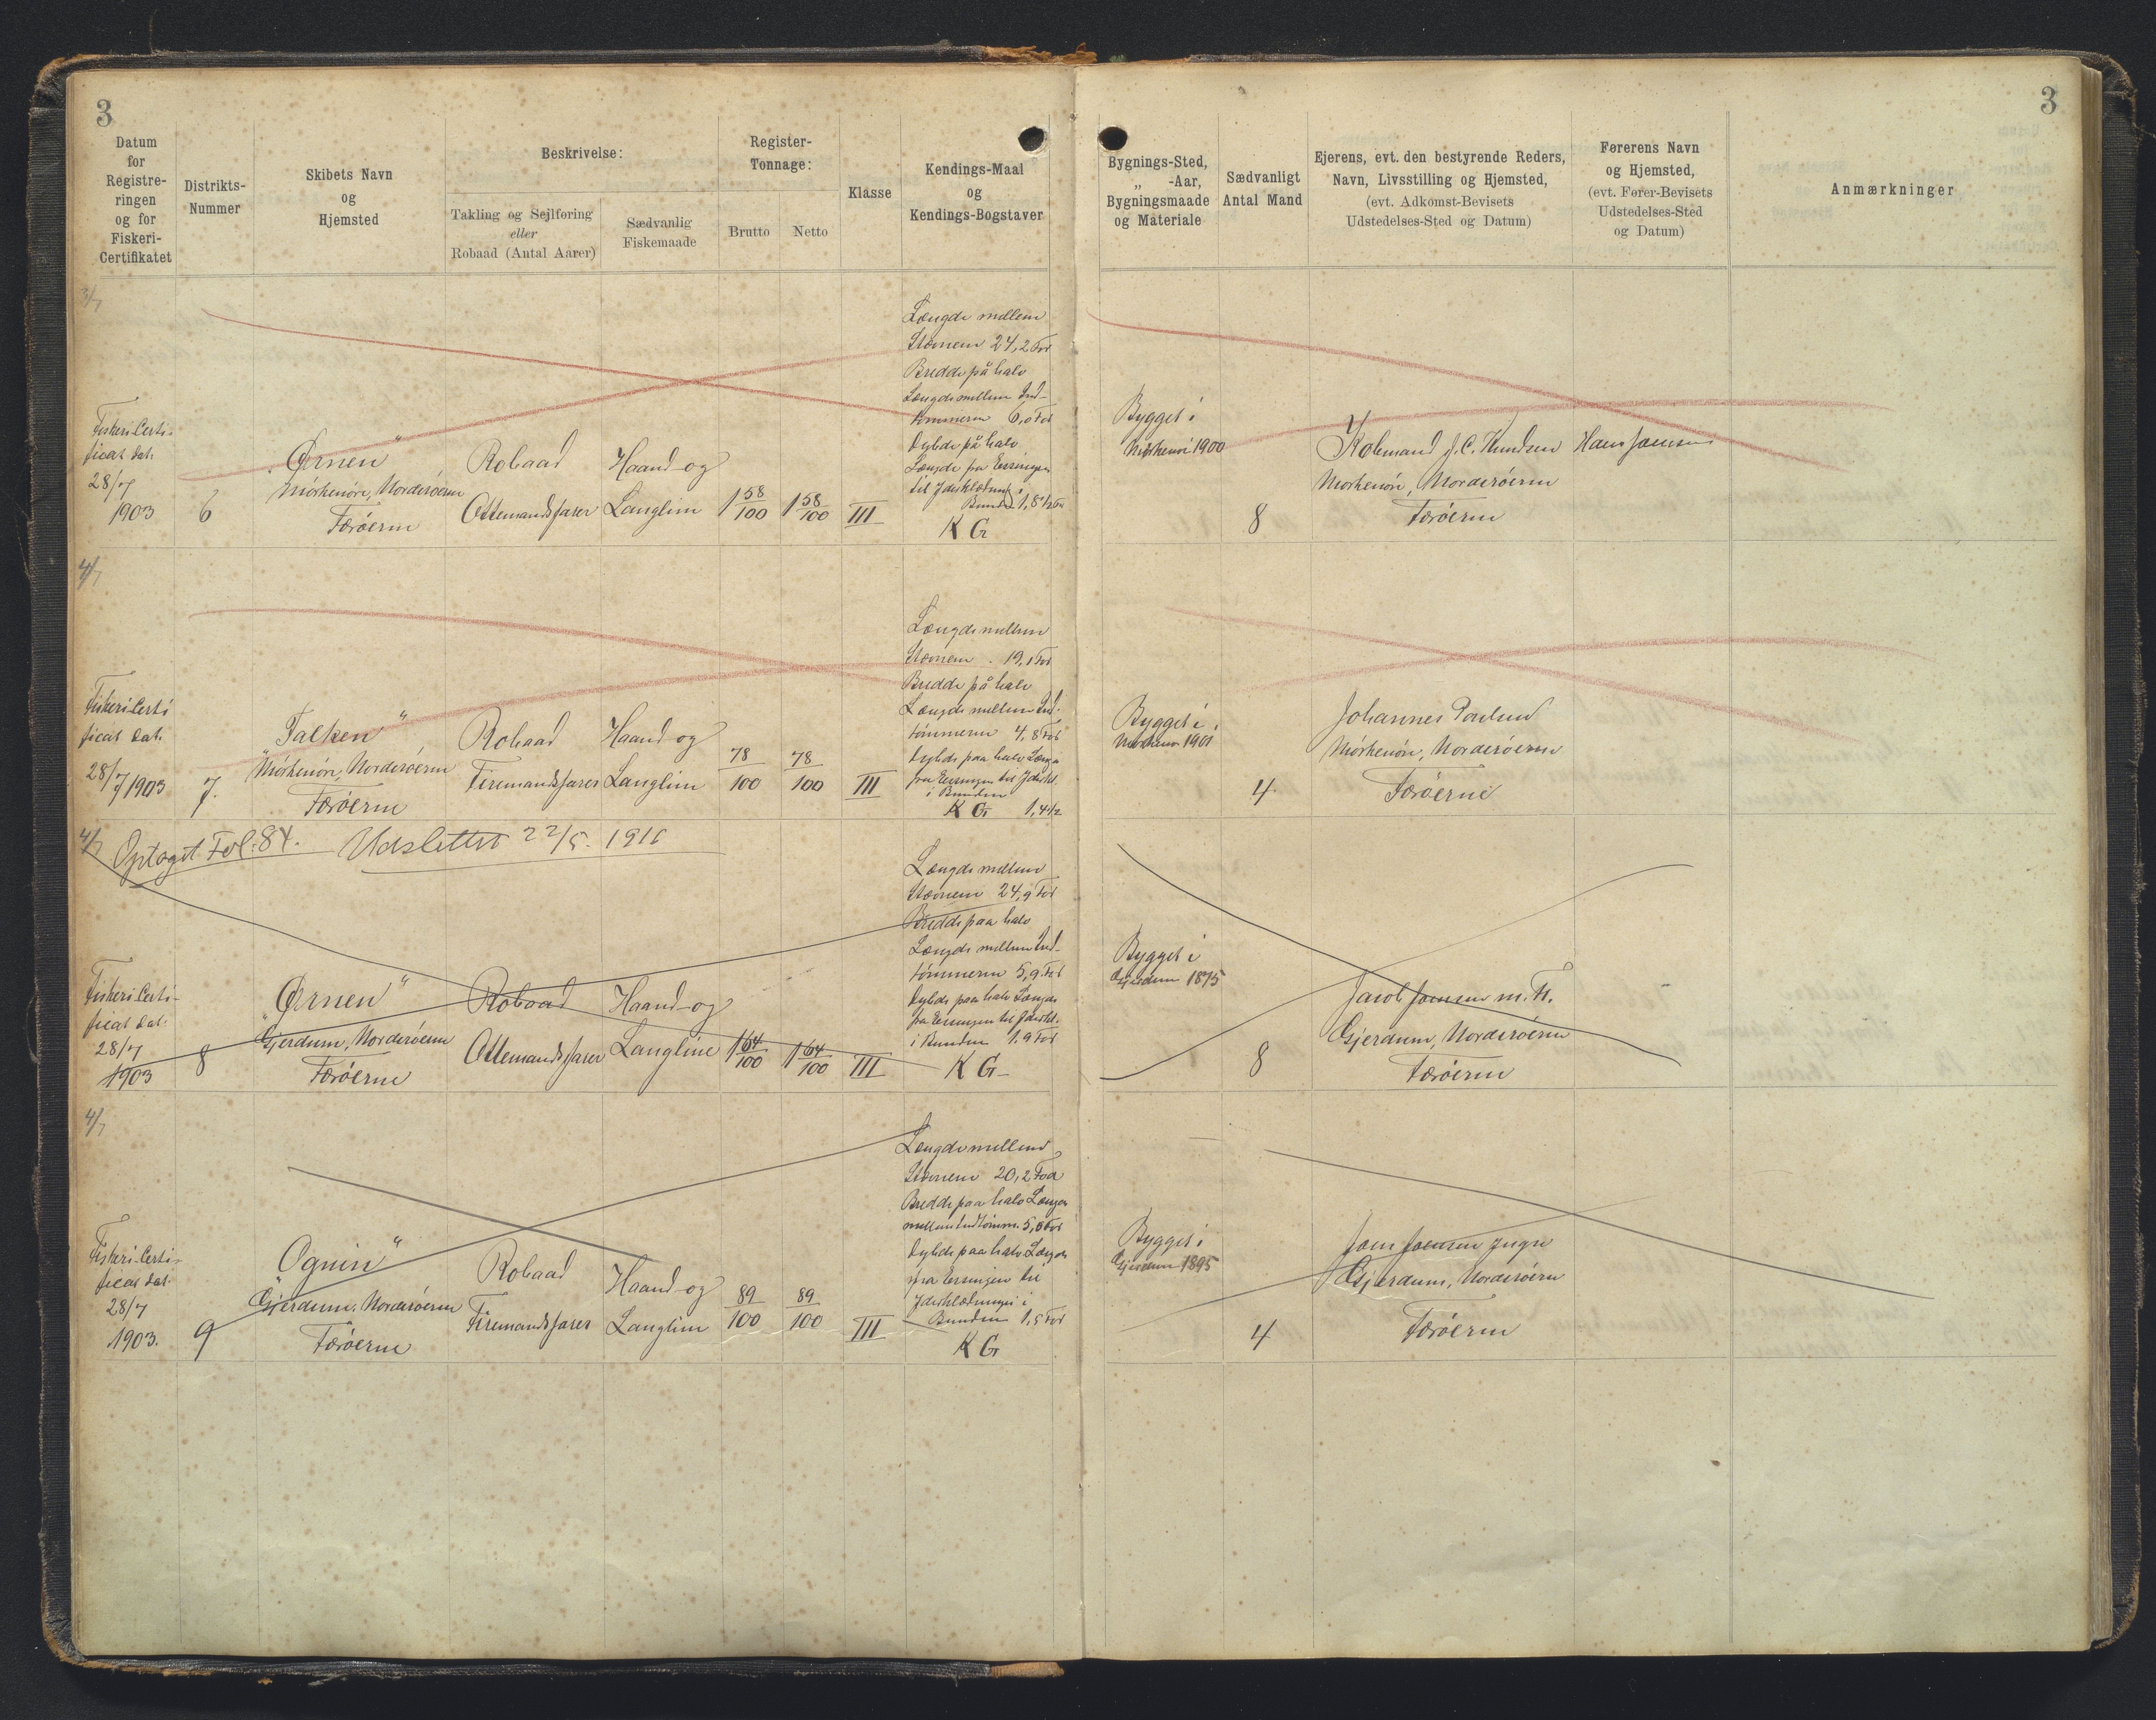 3
3
Datum
for
Registre-
ringen
og for
Fiskeri-
Certifikatet
Distrikts-
Nummer
Skibets Navn
og
Hjemsted
Beskrivelse:
Takling og Sejlføring
eller
Robaad (Antal Aarer)
Sædvanlig
Fiskemaade
Register-
Tonnage:
Brutto
Netto
Klasse
Kendings-Maal
og
Kendings-Bogstaver
Bygnings-Sted,
„ -Aar,
Bygningsmaade
og Materiale
Sædvanligt
Antal Mand
Ejerens, evt. den bestyrende Reders,
Navn, Livsstilling og Hjemsted,
(evt. Adkomst-Bevisets
Udstedelses-Sted og Datum)
Førerens Navn
og Hjemsted,
(evt. Fører-Bevisets
Udstedelses-Sted
og Datum)
Anmærkninger
3/7
Fiskeri Certi-
ficat dat.
28/7
1903
6
„Ørnen"
Mörkenöre, Norderöerne
Færöerne
Robaad
Ottemandsfarer
Haand- og
Langline
1 58/100
1 58/100
III
Længde mellem
Stævnene 24,2 Fod
Bredde på halv
Længde mellem Ind-
tömmerne 6,0 Fod
Dybde på halv
Længde fra Essingen
til Yderklædning i
Bunden 1,8 1/2 Fod
K G
Bygget i
Mörkenöre 1900
8
Købmand J. C. Knudsen
Mörkenöre, Norderöerne
Færöerne
Hans Joensen
4/7
Fiskeri Certi
ficat dat.
28/7 1903
7.
„Falken"
Mörkenöre, Norderöerne
Færöerne
Robaad
Firemandsfarer
Haand- og
Langline
78/100
78/100
III
Længde mellem
Stævnene 19,1 Fod
Bredde på halv
Længde mellem Ind-
tömmerne 4,8 Fod
Dybde paa halv Længde
fra Essingen til Yderkl.
i Bunden
K G 1,4 1/2
Bygget i
Mörkenöre 1901
4
Johannes Poulsen
Mörkenöre, Norderöerne
Færöerne
4/7
Optaget Fol. 84. Udslettet 22/5. 1916
Fiskeri Certi-
ficat dat.
28/7
1903
8
„Ørnen"
Gjerdum, Norderöerne
Færöerne
Robaad
Ottemandsfarer
Haand- og
Langline
1 64/100
1 64/100
III
Længde mellem
Stævnene 24,9 Fod
Bredde paa halv
Længde mellem Ind-
tömmerne 5,9 Fod
Dybde paa halv Længde
fra Essingen til Yderkl.
i Bunden 1,9 Fod
K G
Bygget i
Gjerdum 1875
8
Jacob Joensen m. Fl.
Gjerdum, Norderöerne
Færöerne
4/7
Fiskeri Certi-
ficat dat.
28/7
1903.
9
„Ognin"
Gjerdum, Norderöerne
Færöerne
Robaad
Firemandsfarer
Haand- og
Langline
89/100
89/100
III
Længde mellem
Stævnene 20,2 Fod
Bredde paa halv Længde
mellem Indtömm. 5,0 Fod
Dybde paa halv Længde
fra Essingen til
Yderklædningen i
Bunden 1,5 Fod
K G
Bygget i
Gjerdum 1895
4
Joen Joensen
Gjerdum, Norderöerne
Færöerne